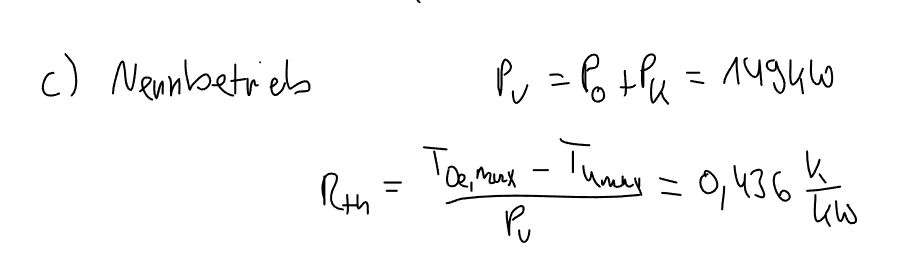 c) Nennbetrieb P_V = P_0 + P_K = 149 kW
R_th = (T_Öl,max - T_U max) / P_V = 0,436 K/kW